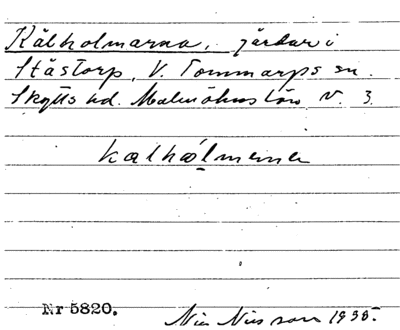 Kålholmarna, gärdar i
Ståstorp, V. Tommarps sn.
Skytts hd. Malmöhus län V. 3.
kalhólmana
Nr 5820.
Nils Nilsson 1935.